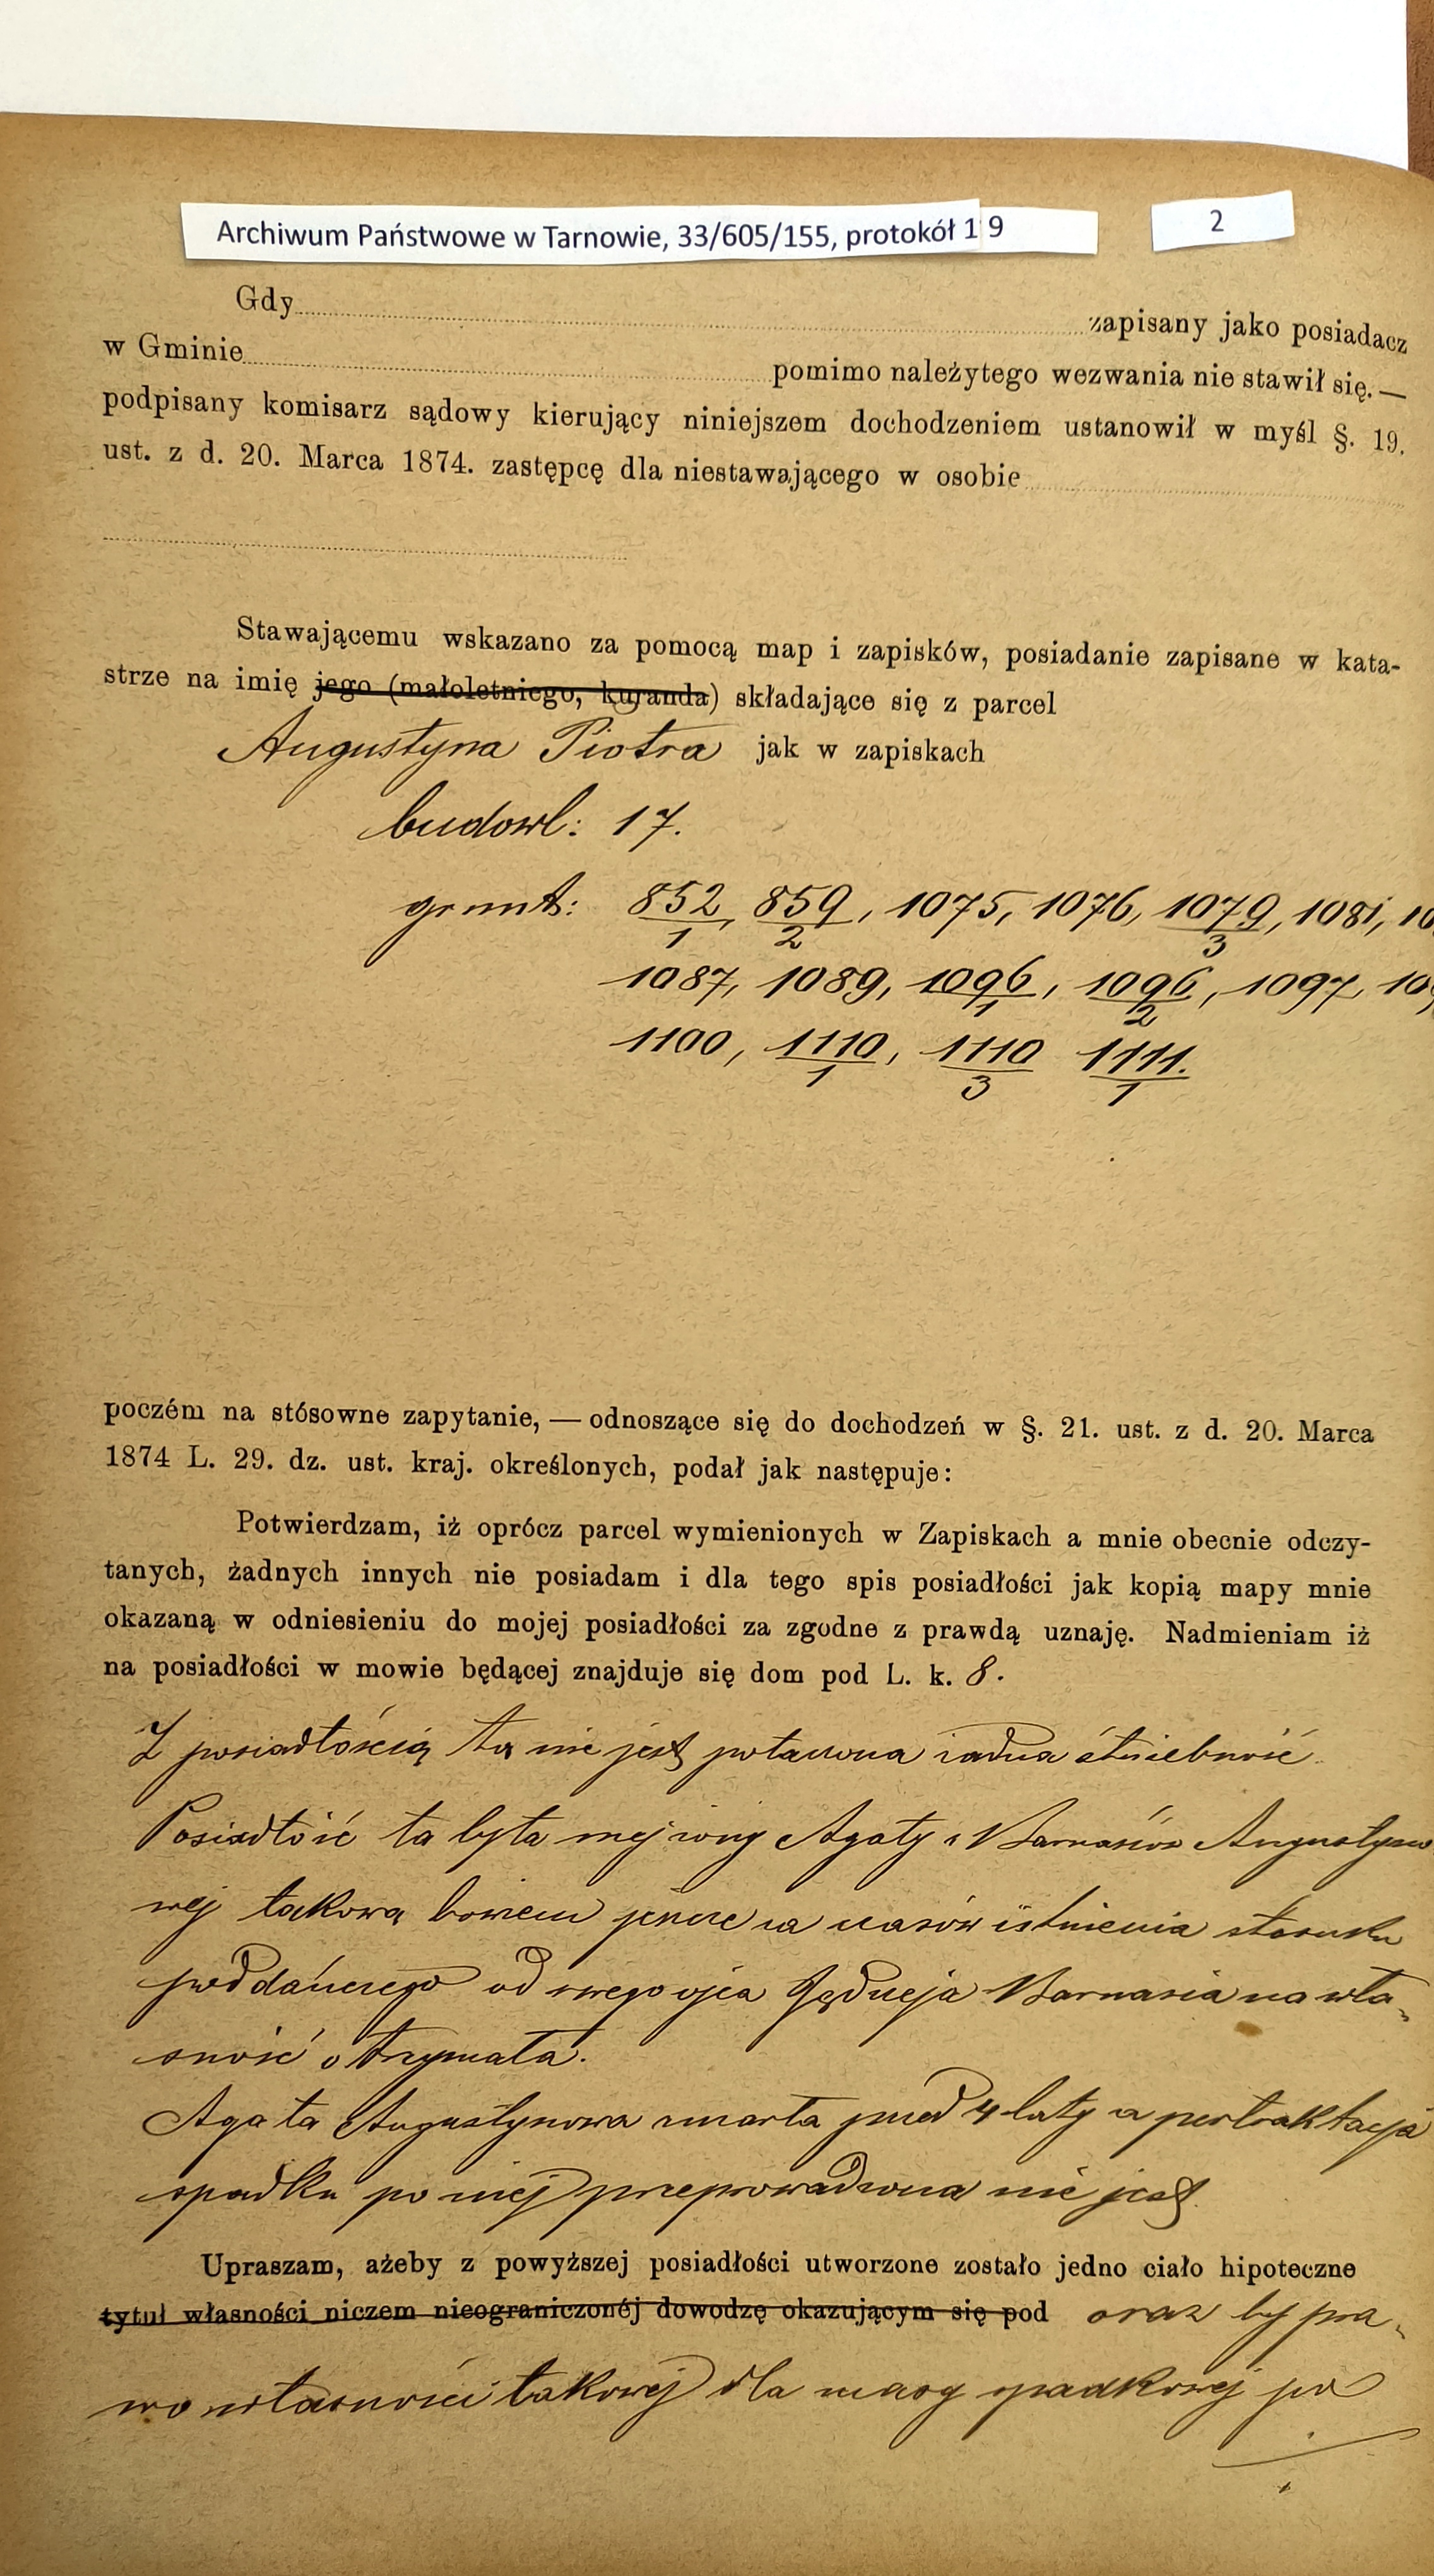 Archiwum Państwowe w Tarnowie, 33/605/155, protokół 19
2
Gdy zapisany jako posiadacz
w Gminie pomimo należytego wezwania nie stawił się. —
podpisany komisarz sądowy kierujący niniejszem dochodzeniem ustanowił w myśl §. 19.
ust. z d. 20. Marca 1874. zastępcę dla niestawającego w osobie
Stawającemu wskazano za pomocą map i zapisków, posiadanie zapisane w kata-
strze na imię jego (małoletniego, kuranda) składające się z parcel
Augustyna Piotra jak w zapiskach
budowl: 17.
grunt: 852/1, 859/2, 1075, 1076, 1079/3, 1081,
1087, 1089, 1096/1, 1096/2, 1097,
1100, 1110/1, 1110/3 1111/1.
poczém na stósowne zapytanie, — odnoszące się do dochodzeń w §. 21. ust. z d. 20. Marca
1874 L. 29. dz. ust. kraj. określonych, podał jak następuje:
Potwierdzam, iż oprócz parcel wymienionych w Zapiskach a mnie obecnie odczy-
tanych, żadnych innych nie posiadam i dla tego spis posiadłości jak kopią mapy mnie
okazaną w odniesieniu do mojej posiadłości za zgodne z prawdą uznaję. Nadmieniam iż
na posiadłości w mowie będącej znajduje się dom pod L. k. 8.
Z posiadłością tą nie jest połączona żadna służebność.
Posiadłość ta była mej żony Agaty z Barnasiów Augustyno
wej takową bowiem jeszcze za czasów istnienia stosunku
poddańczego od swego ojca Jędrzeja Barnasia na wła-
sność otrzymała.
Agata Augustynowa zmarła przed 4 laty a pertraktacja
spadku po niej przeprowadzona nie jest.
Upraszam, ażeby z powyższej posiadłości utworzone zostało jedno ciało hipoteczne
tytuł własności niczem nieograniczonéj dowodzę okazującym się pod oraz by pra-
wo własności takowej dla masy spadkowej po
./.